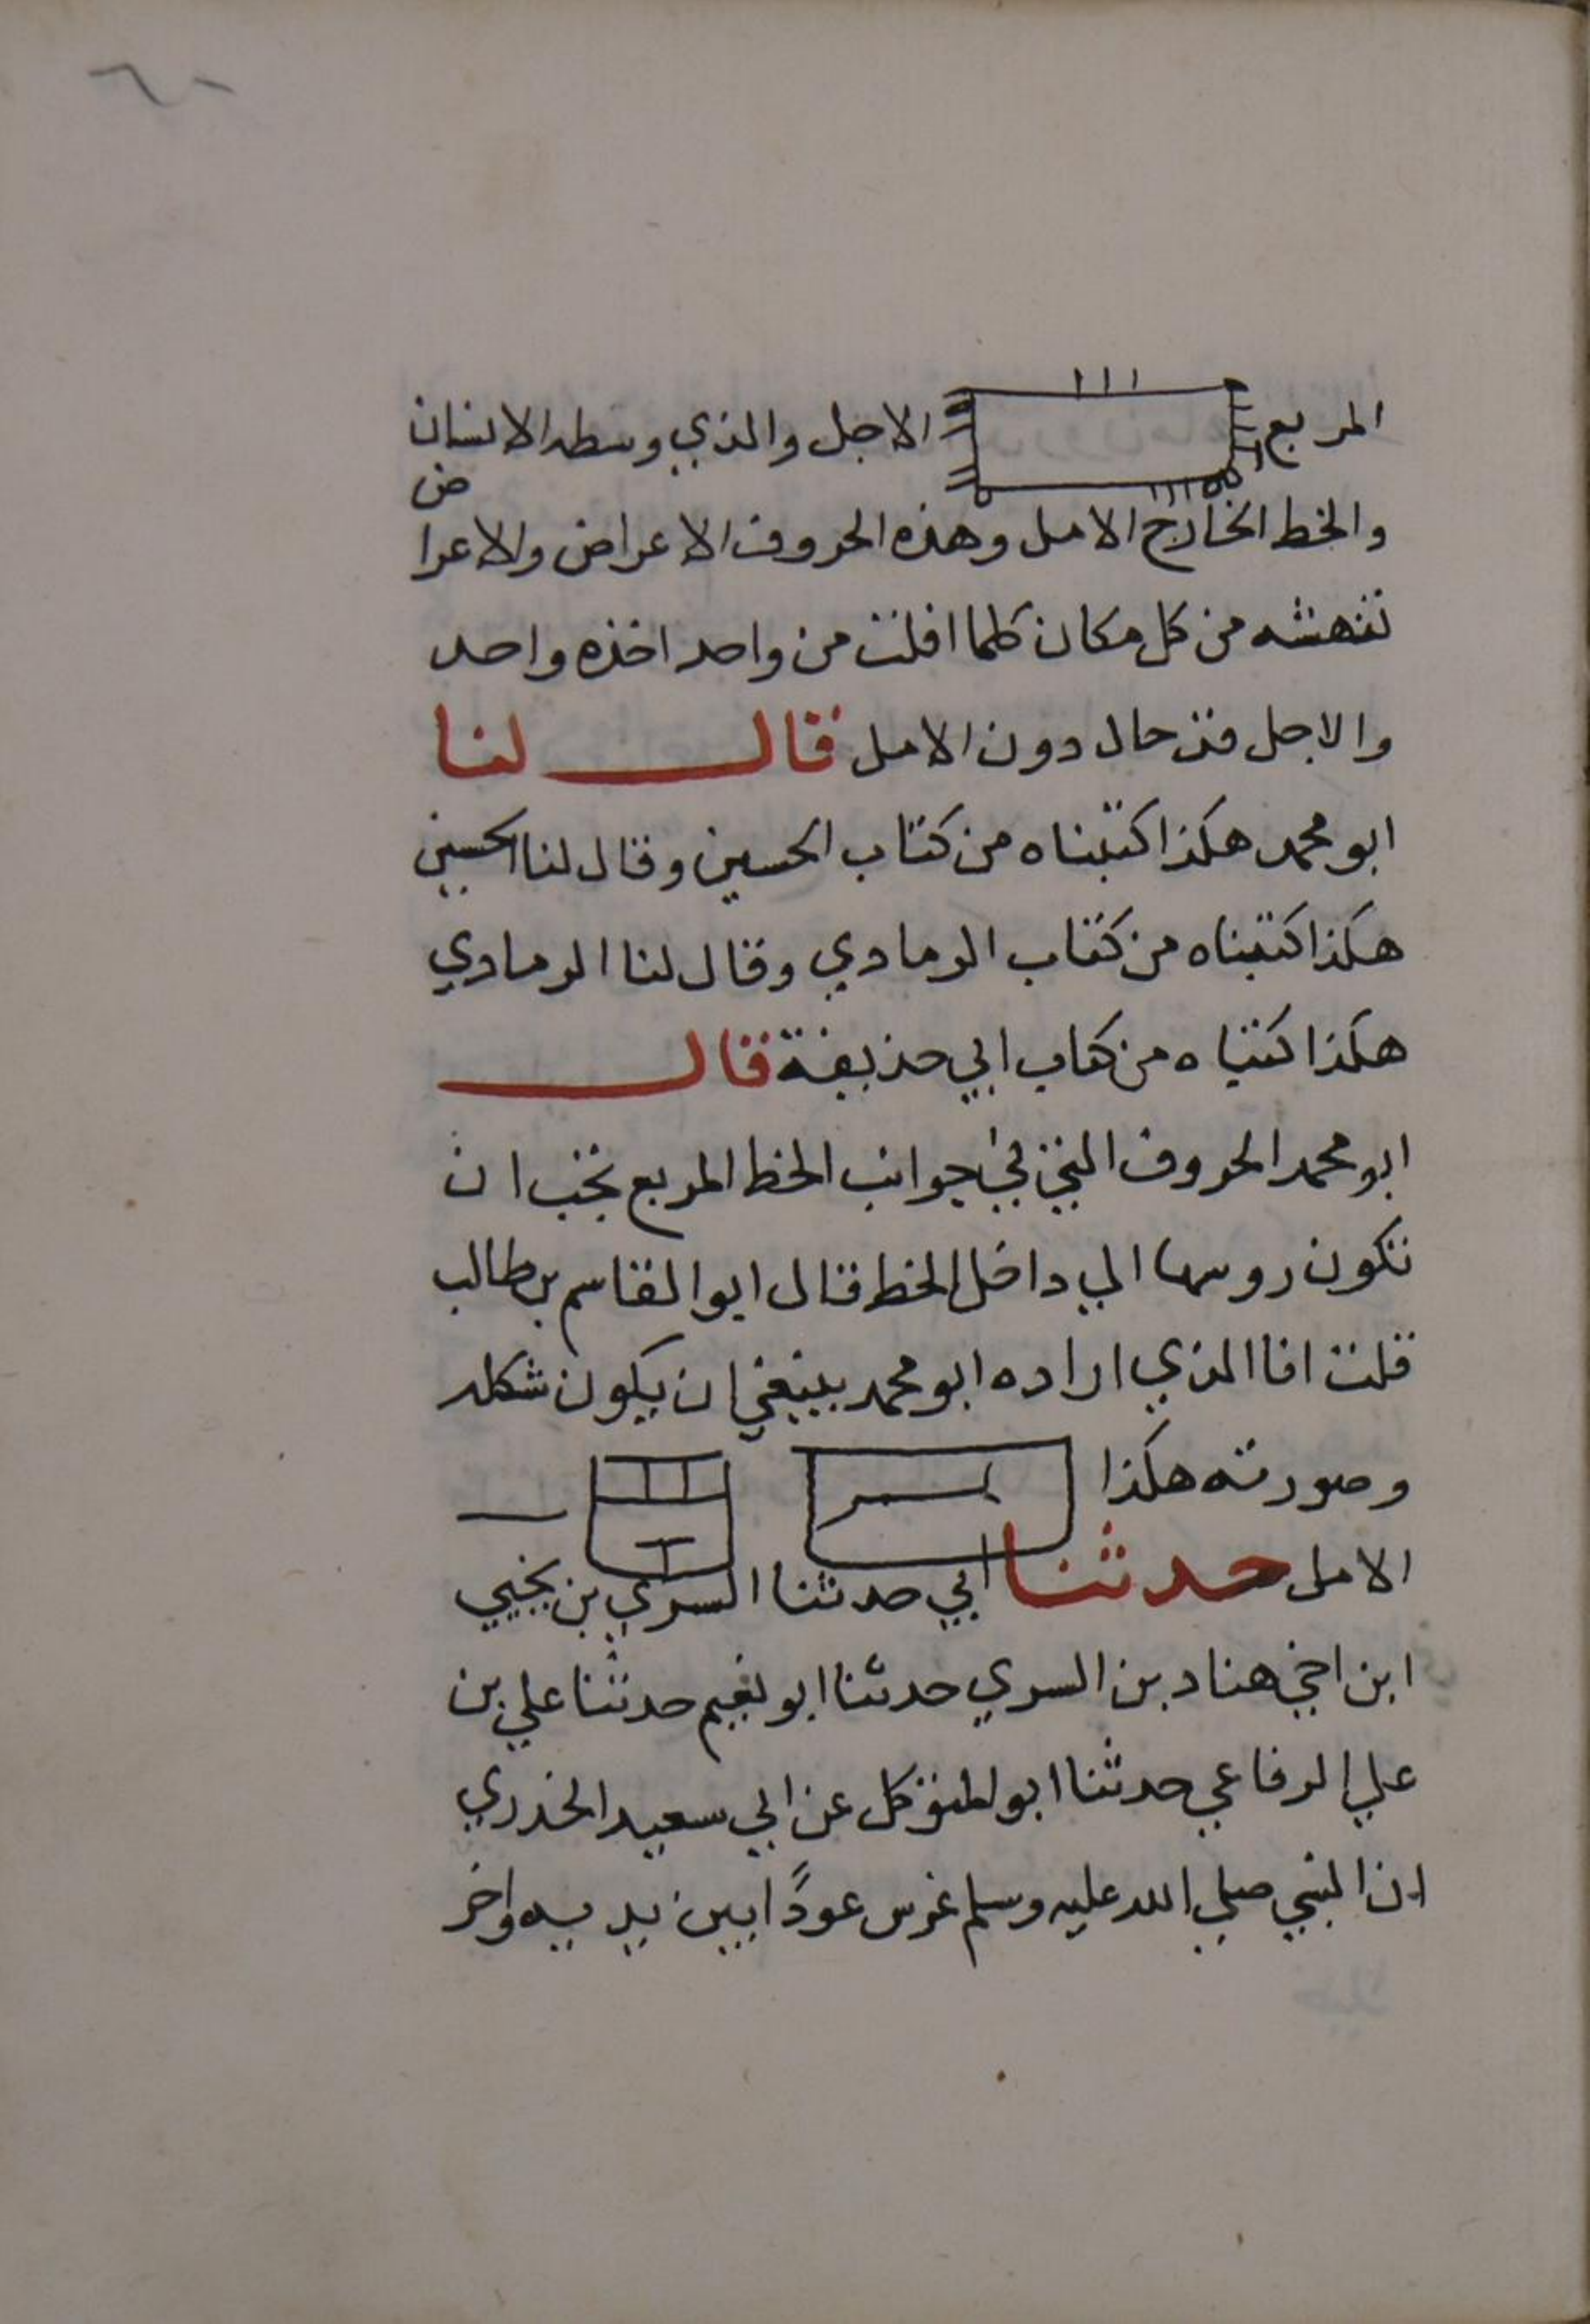 المربع الاجل والذي وسطه الانسان
والخط الخارج الامل وهذه الحروف الاعراض والاعراض
تنهشه من كل مكان كلما افلت من واحد اخذه واحد
والاجل قد حال دون الامل قال لنا
ابو محمد هكذا كتبناه من كتاب الحسين وقال لنا الحسين
هكذا كتبناه من كتاب الرمادي وقال لنا الرمادي
هكذا كتبناه من كتاب ابي حذيفة قال
ابو محمد الحروف التي في جوانب الخط المربع يجب ان
تكون روسها الي داخل الخط قال ابو القاسم بن طالب
قلت انا الذي اراده ابو محمد ينبغي ان يكون شكله
وصورته هكذا
الامل حدثنا ابي حدثنا السري بن يحيي
ابن اخي هناد بن السري حدثنا ابو نعيم حدثنا علي بن
علي الرفاعي حدثنا ابو المتوكل عن ابي سعيد الخدري
ان النبي صلي الله عليه وسلم غرس عودًا بين يديه واخر